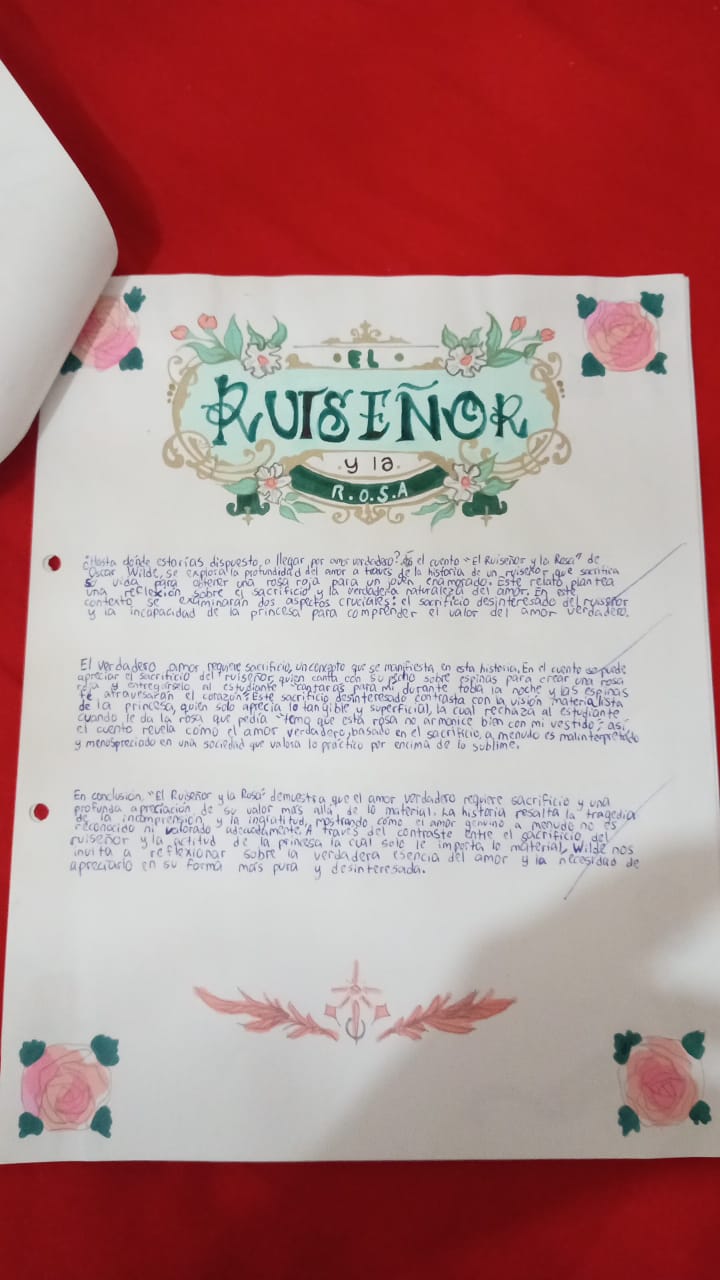 EL
RUISEÑOR
y la
R.O.S.A
¿Hasta dónde estarías dispuesto a llegar por amor verdadero? En el cuento "El Ruiseñor y la Rosa" de
Oscar Wilde, se explora la profundidad del amor a través de la historia de un ruiseñor que sacrifica
su vida para obtener una rosa roja para un joven enamorado. Este relato plantea
una reflexión sobre el sacrificio y la verdadera naturaleza del amor. En este
contexto se examinarán dos aspectos cruciales: el sacrificio desinteresado del ruiseñor
y la incapacidad de la princesa para comprender el valor del amor verdadero.
El verdadero amor requiere sacrificio, un concepto que se manifiesta en esta historia. En el cuento se puede
apreciar el sacrificio del ruiseñor, quien canta con su pecho sobre espinas para crear una rosa
roja y entregárselo al estudiante "cantarás para mí durante toda la noche y las espinas
te atravesarán el corazón". Este sacrificio desinteresado contrasta con la visión materialista
de la princesa, quien solo aprecia lo tangible y superficial, la cual rechaza al estudiante
cuando le da la rosa que pedía "temo que esta rosa no armonice bien con mi vestido", así
el cuento revela cómo el amor verdadero, basado en el sacrificio, a menudo es malinterpretado
y menospreciado en una sociedad que valora lo práctico por encima de lo sublime.
En conclusión, "El Ruiseñor y la Rosa" demuestra que el amor verdadero requiere sacrificio y una
profunda apreciación de su valor más allá de lo material. La historia resalta la tragedia
de la incomprensión y la ingratitud, mostrando cómo el amor genuino a menudo no es
reconocido ni valorado adecuadamente. A través del contraste entre el sacrificio del
ruiseñor y la actitud de la princesa la cual solo le importa lo material, Wilde nos
invita a reflexionar sobre la verdadera esencia del amor y la necesidad de
apreciarlo en su forma más pura y desinteresada.